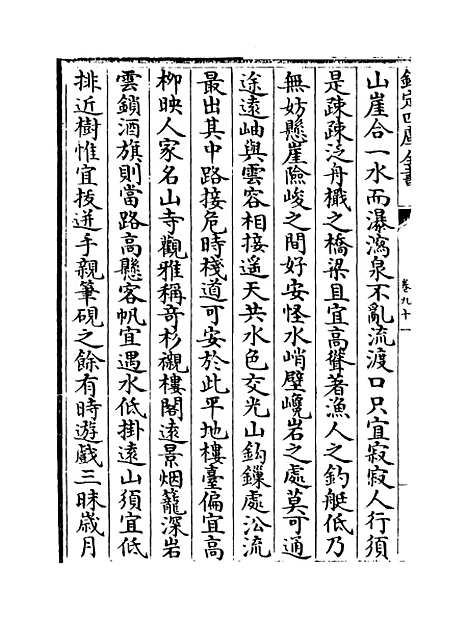 欽定四庫全書
卷九十一
山崖合一水而瀑瀉泉不亂流渡口只宜寂寂人行須
是疎疎泛舟檝之橋梁且宜高聳著漁人之釣艇低乃
無妨懸崖險峻之間好安怪水峭壁巉岩之處莫可通
途遠岫與雲容相接遥天共水色交光山鈎鏁處沿流
最出其中路接危時棧道可安於此平地樓臺偏宜高
柳映人家名山寺觀雅稱竒杉襯樓閣遠景烟籠深岩
雲鎖酒旗則當路高懸客帆宜遇水低掛遠山須宜低
排近樹惟宜拔迸手親筆硯之餘有時遊戲三昧歲月